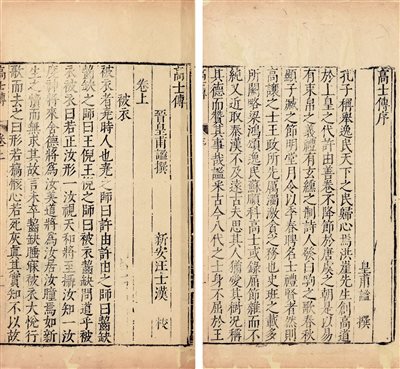 高士傳序
皇甫謐 撰
孔子稱舉逸民天下之民歸心焉洪崖先生創高道
於上皇之代許由善卷不降節於唐虞之朝是以易
有束帛之義禮有玄纁之制詩人發白駒之歌春秋
顯子臧之節明堂月令以季春聘名士禮賢者然則
高讓之士王政所先厲濁激貪之務也史班之載多
所闕略梁鴻頌逸民蘇順科高士或錄屈節雜而不
純又近取秦漢不及遠古夫思其人猶愛其樹況稱
其德而贊其事哉謐采古今八代之士身不屈於王
高士傳
晉皇甫謐撰 新安汪士漢 校
卷上
被衣
被衣者堯時人也堯之師曰許由許由之師曰齧缺
齧缺之師曰王倪王倪之師曰被衣齧缺問道乎被
衣被衣曰若正汝形一汝視天和將至攝汝知一汝
度神將來舍德將爲汝美道將爲汝居汝瞳焉如新
生之犢而無求其故言未卒齧缺睡寐被衣大悅行
歌而去之曰形若槁骸心若死灰眞其實知不以故